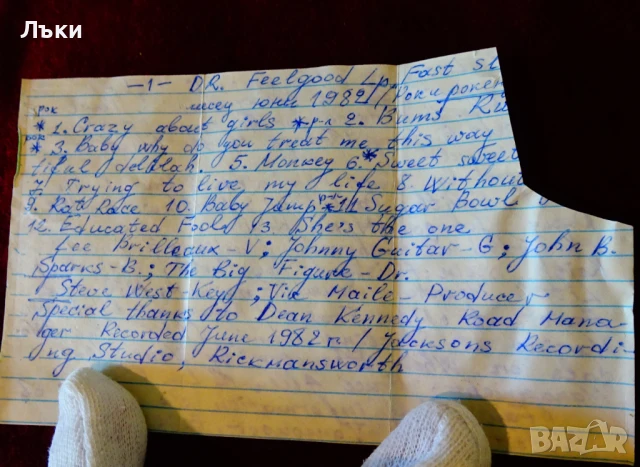 Лъки
-1- DR. Feelgood Lp. Fast
рок
юни 1982/
* 1. Crazy about girls * 2. Bums
* 3. Baby why do you treat me this way
tiful delilah. 5. Monkey 6. * Sweet sweet
7. Trying to live my life 8. Without
9. Rat Race 10. Baby Jump 11. Sugar Bowl
12. Educated Fools 13 She's the one
Lee Brilleaux - V; Johnny Guitar - G; John B.
Sparks - B.; The Big Figure - Dr.
Steve West Key; Vic Maile - Producer
Special thanks to Dean Kennedy Road Mana-
ger Recorded June 1982 г. / Jacksons Recordi-
ng Studio, Rickmansworth
BAZAR
bg